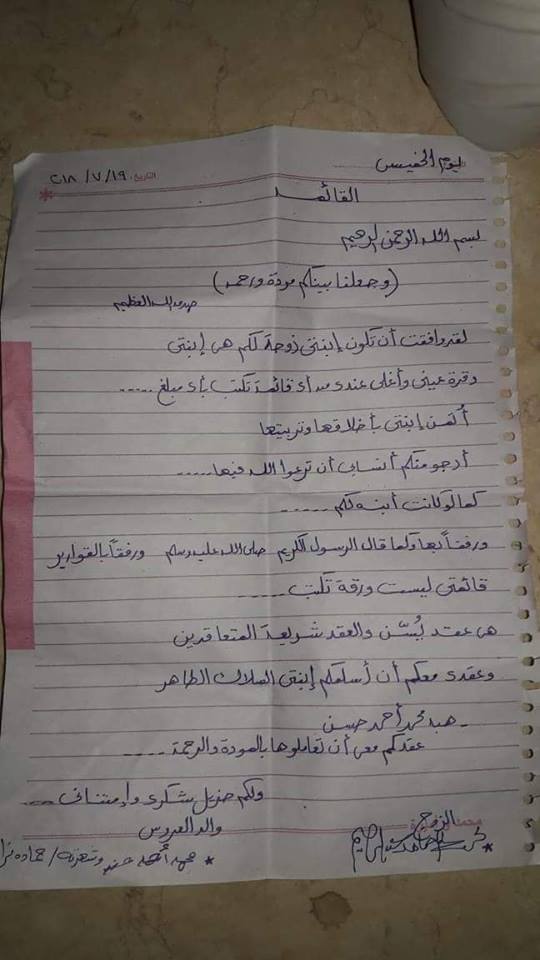 يوم الخميس
التاريخ: ٢٠١٨/٧/١٩
القائمة
بسم الله الرحمن الرحيم
(وجعلنا بينكم مودة ورحمة)
صدق الله العظيم
لقد وافقت أن تكون إبنتى زوجة لكم هى إبنتى
وقرة عينى وأغلى عندى من أى قائمة تكتب بأى مبلغ .....
أثمن إبنتى بأخلاقها وتربيتها
أرجو منكم أنسابى أن ترعوا الله فيها .....
كما لو كانت أبنه لكم .....
ورفقاً بها وكما قال الرسول الكريم صلى الله عليه وسلم ورفقاً بالقوارير
قائمتى ليست ورقة تكتب .....
هى عقد يُسنّ والعقد شريعة المتعاقدين
وعقدى معكم أن أسلمكم إبنتى الملاك الطاهر
- هبه محمد أحمد حسن
عقدكم معى أن تعاملوها بالمودة والرحمة .....
ولكم جزيل شكرى وإمتنانى ....
والد العروس
الزوج
* محمد أحمد حسن وشهرته / حماده